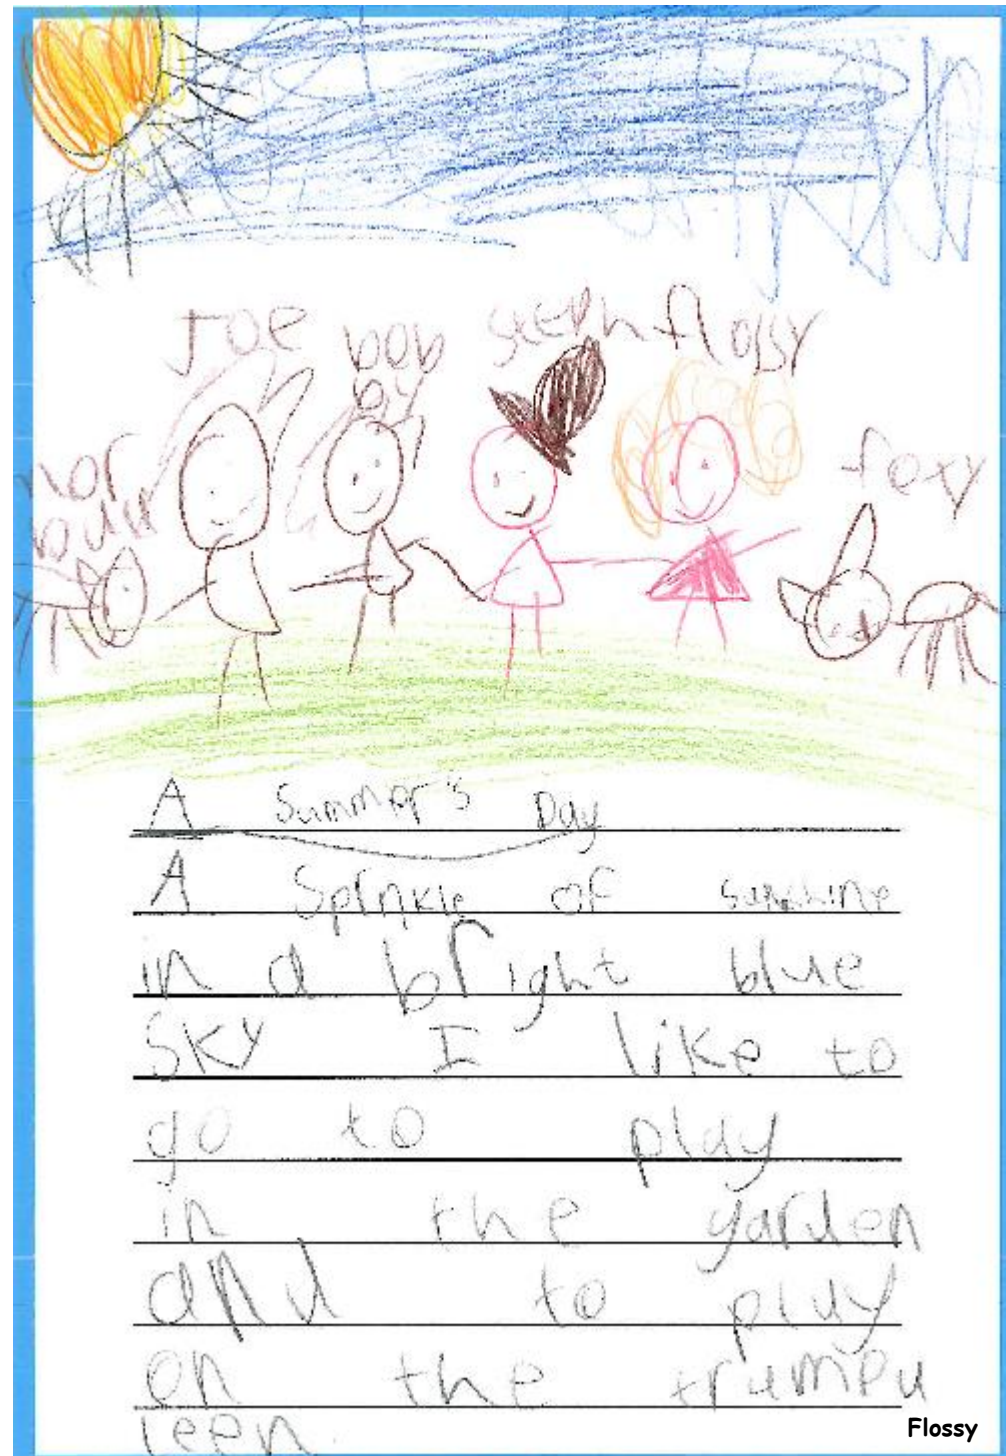 Joe bob steph flossy
by
foxy
A Summer's Day
A Sprinkle of sunshine
in a bright blue
sky I like to
go to play
in the garden
and to play
on the trampu
leen.
Flossy